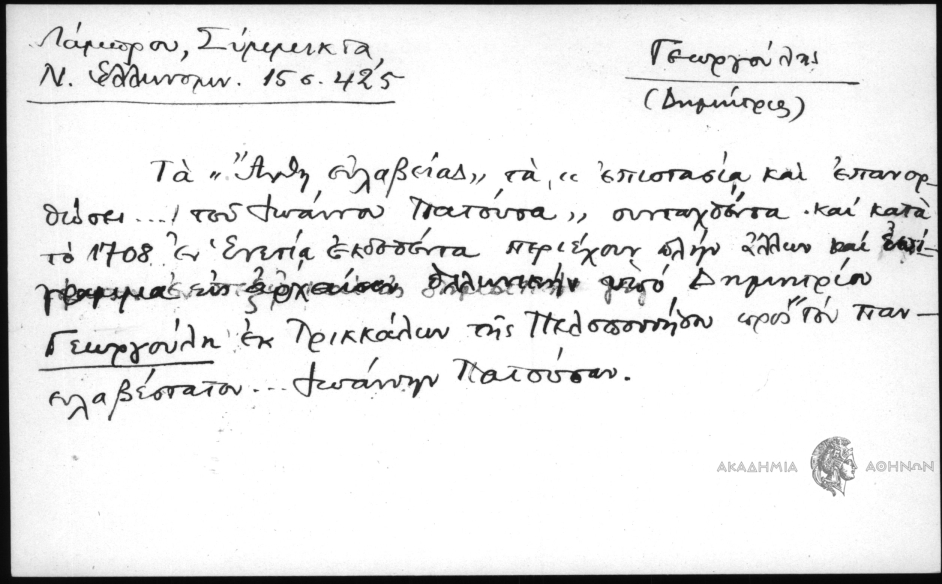 Λάμπρου, Σύμμεικτα,
Ν. Ελληνομν. 15 σ. 425
Γεωργούλης
(Δημήτριος)
Τὰ „Ἄνθη εὐλαβείας" τὰ „ ἐπιστασίᾳ καὶ ἐπανορ-
θώσει ...! τοῦ Ἰωάννου Πατούσα„ συνταχθέντα καὶ κατὰ
τὸ 1708 ἐν Ἐνετίᾳ ἐκδοθέντα περιέχουν πλὴν ἄλλων καὶ ἐπί-
γραμμα εἰς ἀρχαίαν ἑλληνικὴν ὑπὸ Δημητρίου
Γεωργούλη ἐκ Τρικκάλων τῆς Πελοποννήσου πρὸς "τὸν παν-
ευλαβέστατον ... Ἰωάννην Πατούσαν.
ΑΚΑΔΗΜΙΑ ΑΘΗΝΩΝ